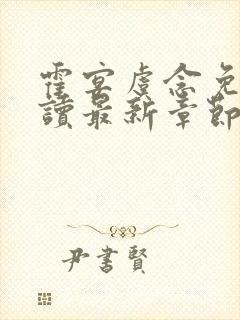 霍宴虞念免
讀最新章節
尹書賢